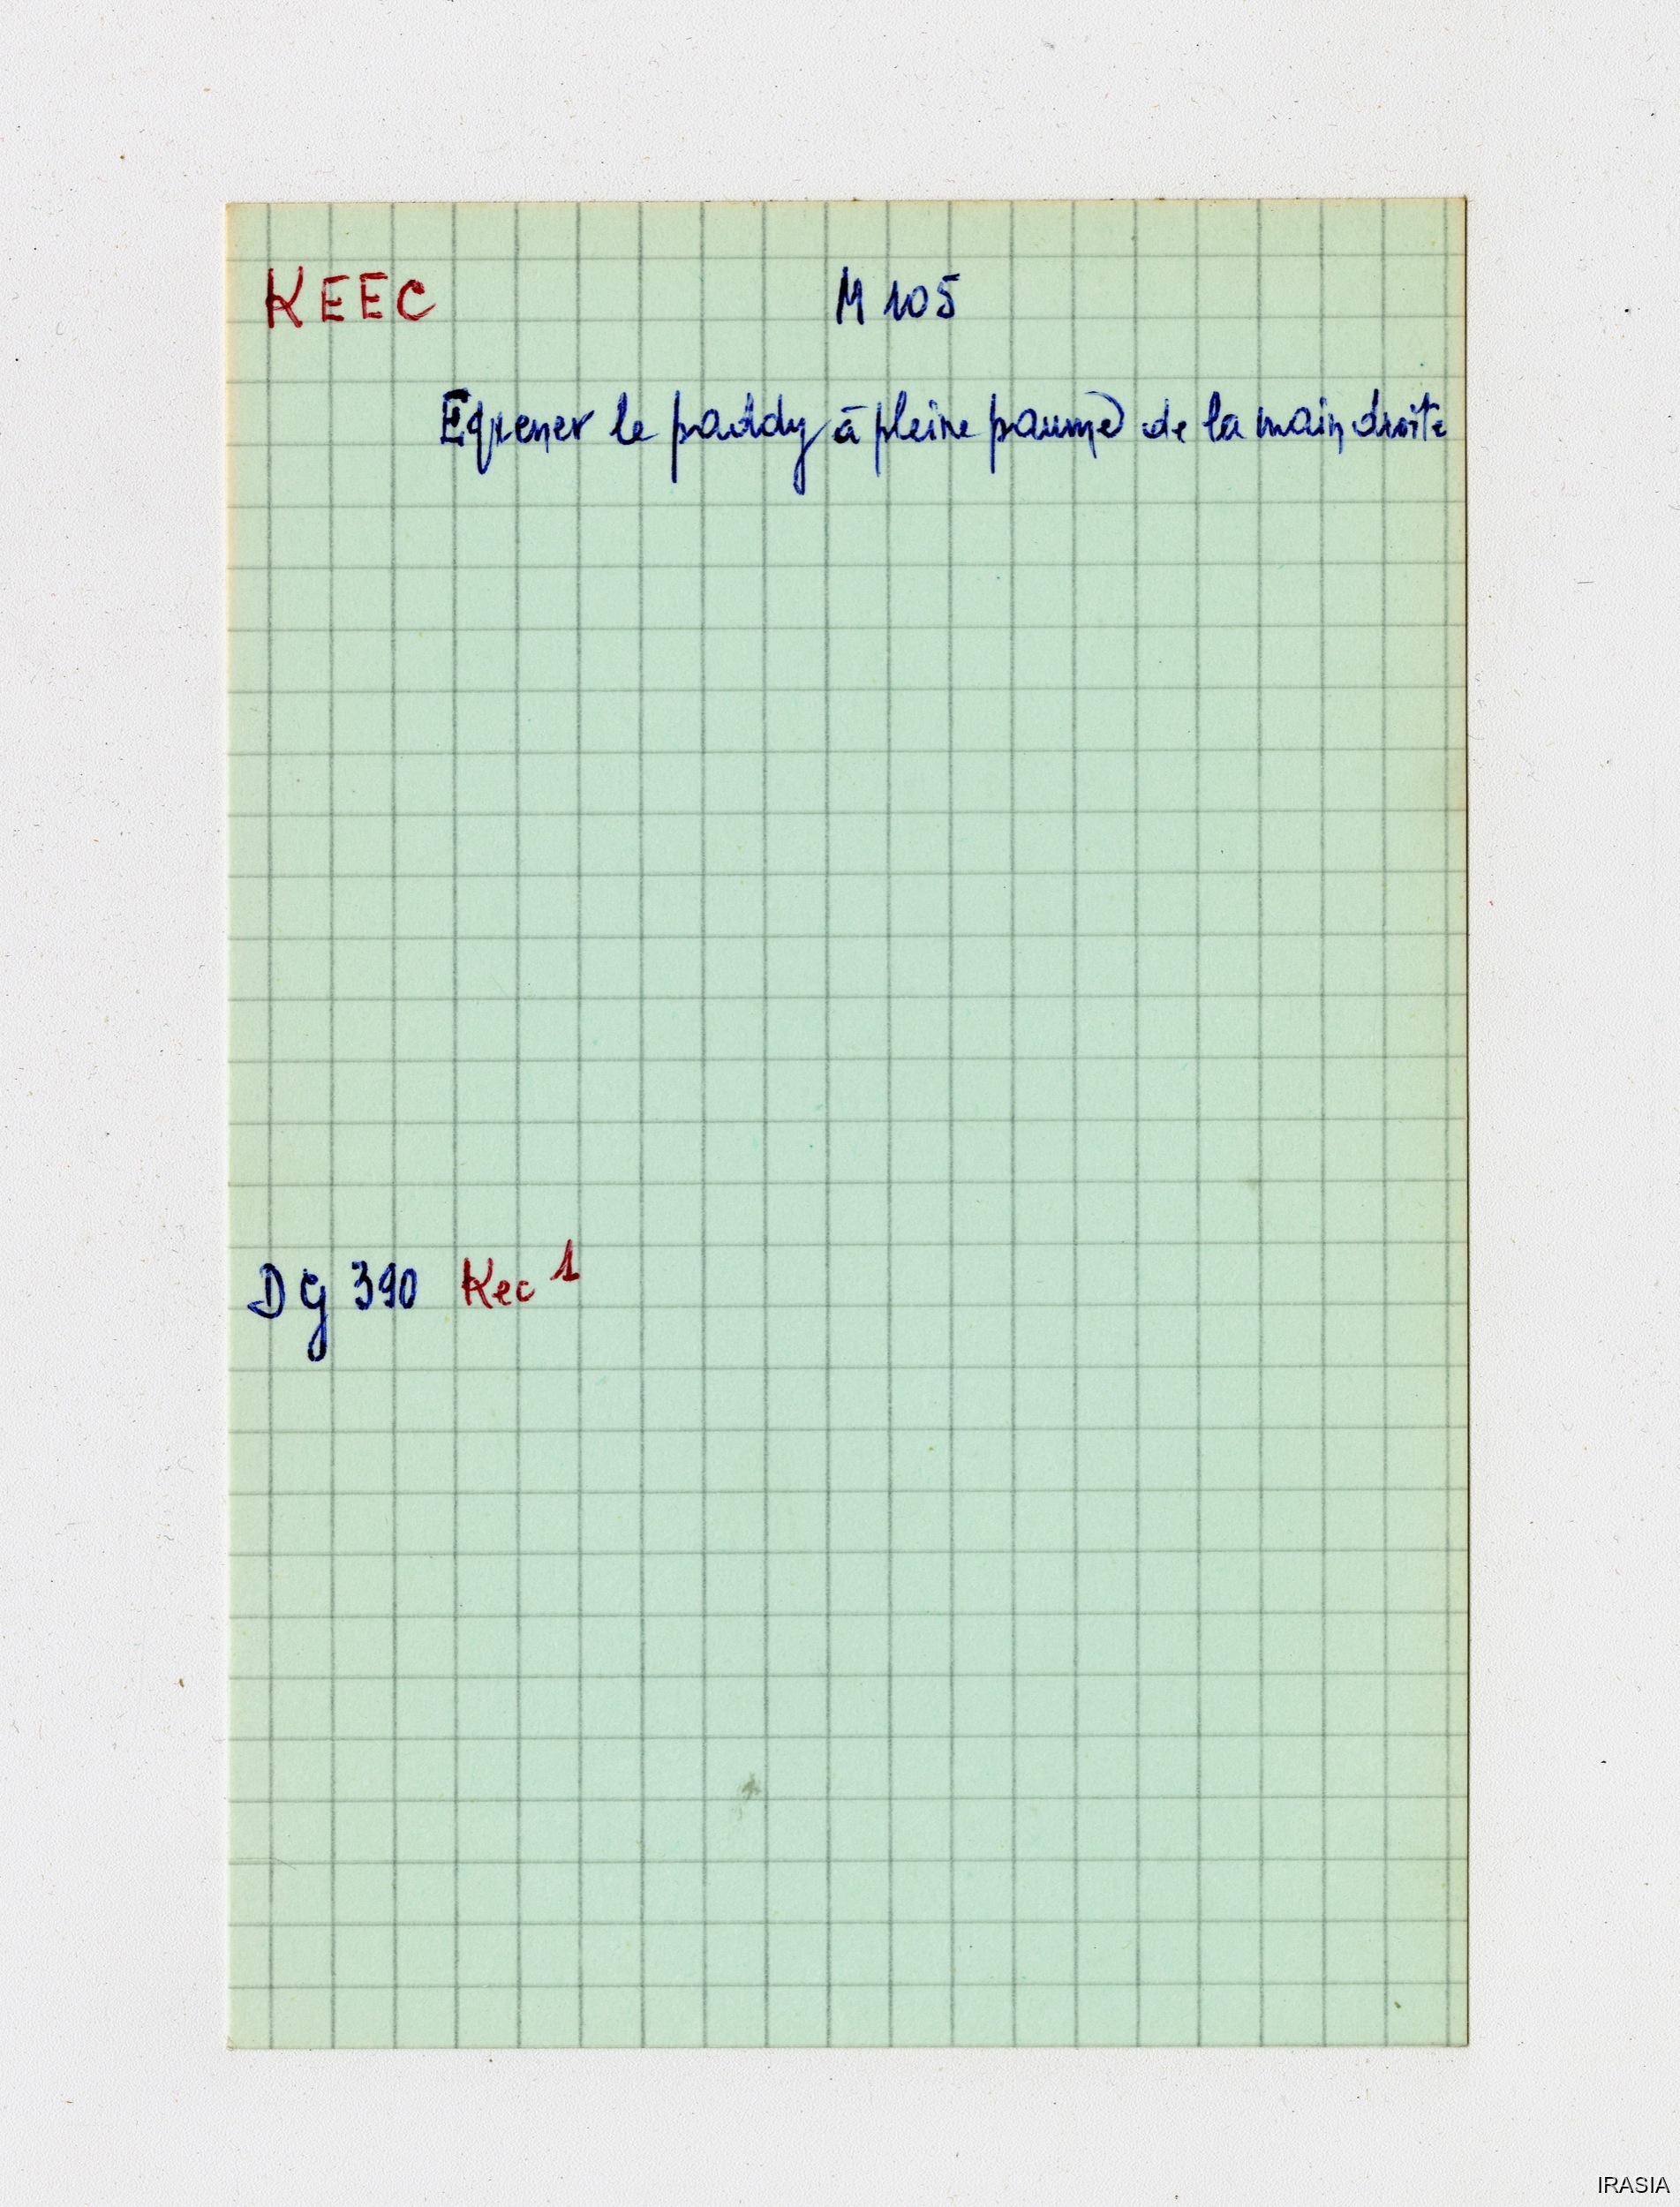 KEEC M 105
Egrener le paddy à pleine paume de la main droite
DG 390 Kec 1
IRASIA